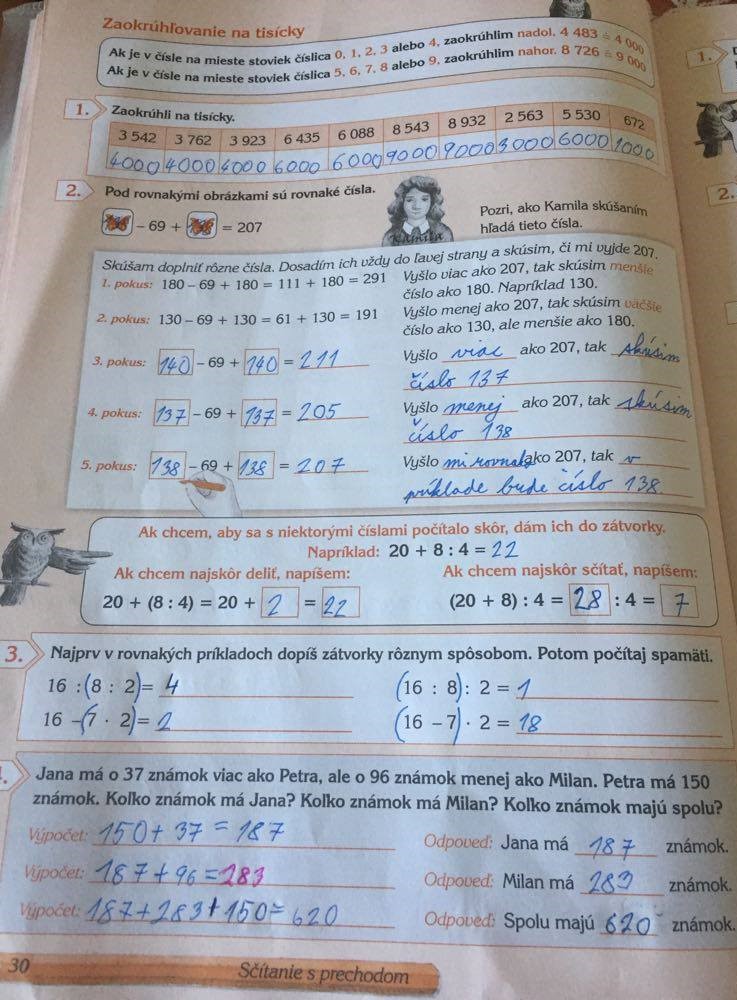 Zaokrúhľovanie na tisícky
Ak je v čísle na mieste stoviek číslica 0, 1, 2, 3 alebo 4, zaokrúhlim nadol. 4 483 ≐ 4 000
Ak je v čísle na mieste stoviek číslica 5, 6, 7, 8 alebo 9, zaokrúhlim nahor. 8 726 ≐ 9 000
1.
1. Zaokrúhli na tisícky.
3 542 3 762 3 923 6 435 6 088 8 543 8 932 2 563 5 530 672
4000 4000 4000 6000 6000 9000 9000 3000 6000 1000
2. Pod rovnakými obrázkami sú rovnaké čísla.
2.
– 69 + = 207
Kamila
Pozri, ako Kamila skúšaním
hľadá tieto čísla.
Skúšam doplniť rôzne čísla. Dosadím ich vždy do ľavej strany a skúsim, či mi vyjde 207.
1. pokus: 180 – 69 + 180 = 111 + 180 = 291 Vyšlo viac ako 207, tak skúsim menšie
číslo ako 180. Napríklad 130.
2. pokus: 130 – 69 + 130 = 61 + 130 = 191 Vyšlo menej ako 207, tak skúsim väčšie
číslo ako 130, ale menšie ako 180.
3. pokus: 140 – 69 + 140 = 211 Vyšlo viac ako 207, tak skúsim
číslo 137
4. pokus: 137 – 69 + 137 = 205 Vyšlo menej ako 207, tak skúsim
číslo 138
5. pokus: 138 – 69 + 138 = 207 Vyšlo mi rovnako ako 207, tak v
príklade bude číslo 138.
Ak chcem, aby sa s niektorými číslami počítalo skôr, dám ich do zátvorky.
Napríklad: 20 + 8 : 4 = 22
Ak chcem najskôr deliť, napíšem: Ak chcem najskôr sčítať, napíšem:
20 + (8 : 4) = 20 + 2 = 22 (20 + 8) : 4 = 28 : 4 = 7
3. Najprv v rovnakých príkladoch dopíš zátvorky rôznym spôsobom. Potom počítaj spamäti.
16 : (8 : 2) = 4 (16 : 8) : 2 = 1
16 – (7 · 2) = 2 (16 – 7) · 2 = 18
Jana má o 37 známok viac ako Petra, ale o 96 známok menej ako Milan. Petra má 150
známok. Koľko známok má Jana? Koľko známok má Milan? Koľko známok majú spolu?
Výpočet: 150 + 37 = 187 Odpoveď: Jana má 187 známok.
Výpočet: 187 + 96 = 283 Odpoveď: Milan má 283 známok.
Výpočet: 187 + 283 + 150 = 620 Odpoveď: Spolu majú 620 známok.
30 Sčítanie s prechodom